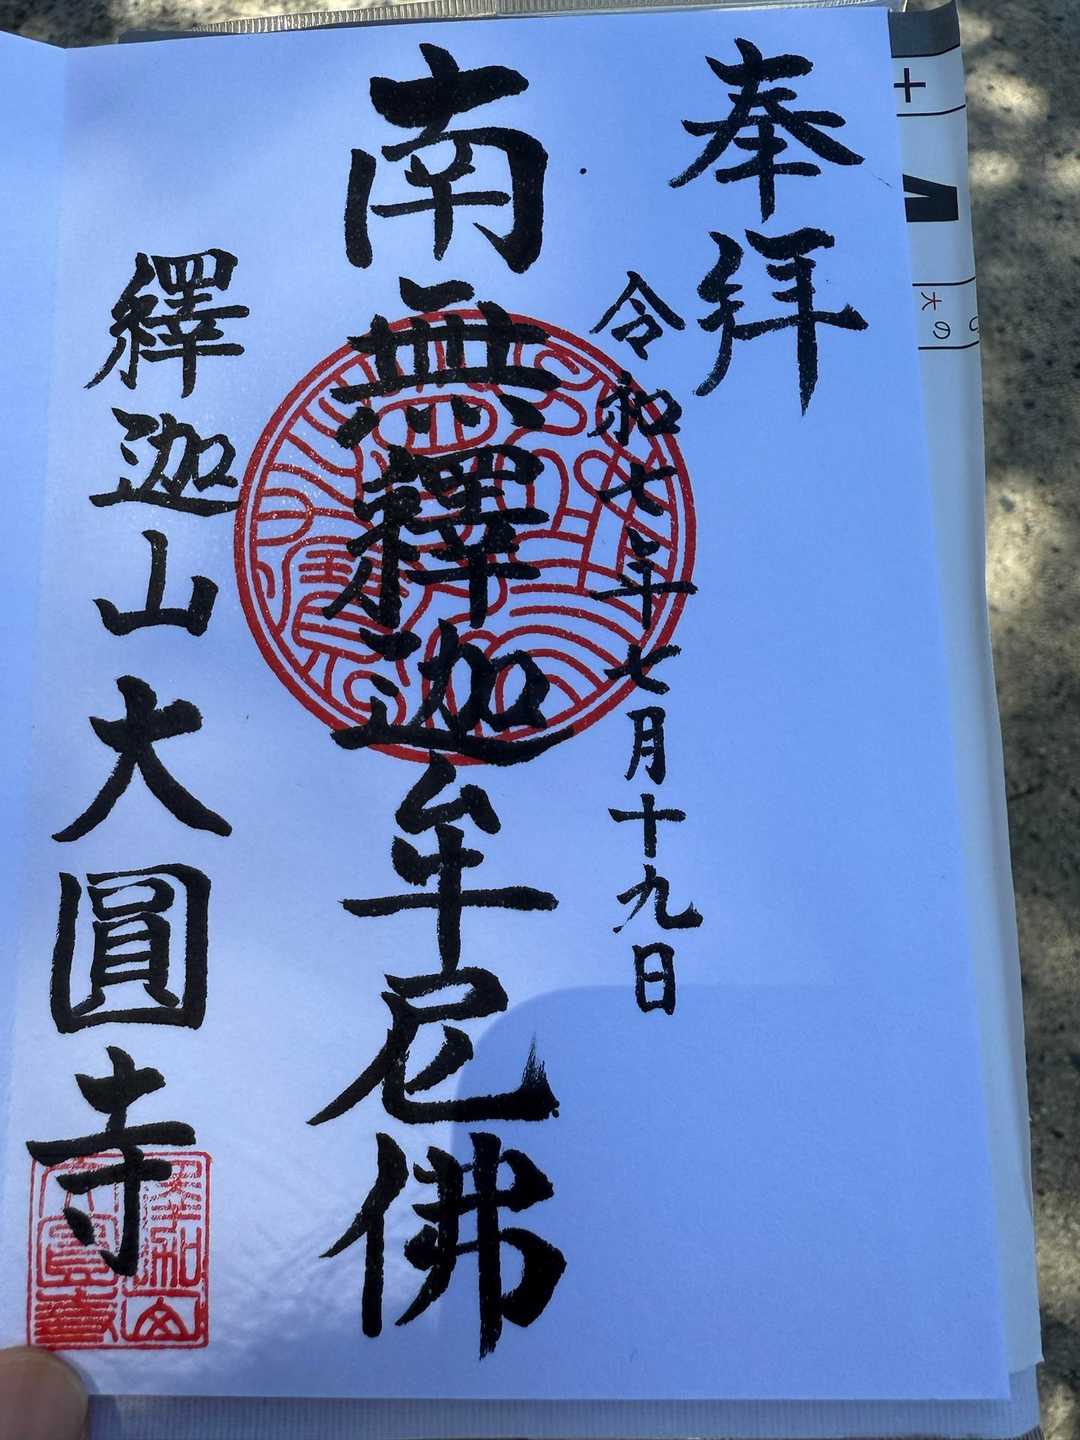 奉拝
令和七年七月十九日
南無釋迦牟尼佛
釋迦山大圓寺
十
大
の